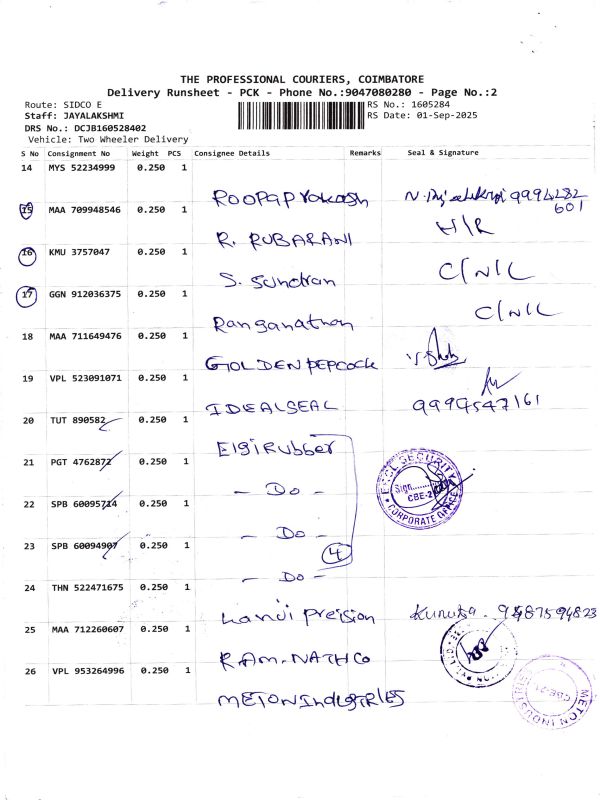 THE PROFESSIONAL COURIERS, COIMBATORE
Delivery Runsheet - PCK - Phone No.:9047080280 - Page No.:2
Route: SIDCO E RS No.: 1605284
Staff: JAYALAKSHMI RS Date: 01-Sep-2025
DRS No.: DCJB160528402
Vehicle: Two Wheeler Delivery
S No Consignment No Weight PCS Consignee Details Remarks Seal & Signature
14 MYS 52234999 0.250 1
Roopaprakash 9994282
601
15 MAA 709948546 0.250 1
R. RUBARANI H/R
16 KMU 3757047 0.250 1
S. Sundran C/N/L
17 GGN 912036375 0.250 1
Ranganathan C/N/L
18 MAA 711649476 0.250 1
GOLDEN PEPCOCK
19 VPL 523091071 0.250 1
IDEALSEAL 9999547161
20 TUT 890582 0.250 1
Elgi Rubber
21 PGT 4762872 0.250 1
- Do -
SECURITY
Sign
CBE-2
CORPORATE OFFICE
22 SPB 60095714 0.250 1
- Do -
23 SPB 60094907 0.250 1
4
- Do -
24 THN 522471675 0.250 1
Preision
25 MAA 712260607 0.250 1
RAM-NATH Co
26 VPL 953264996 0.250 1
METON Industries
METON INDUSTRIES
CBE-21